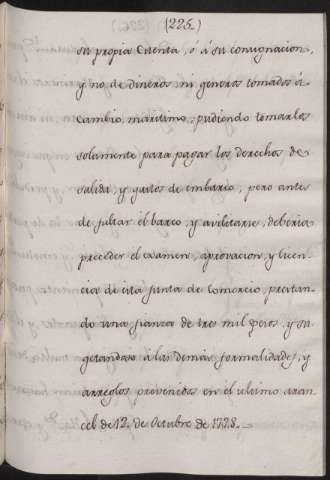 (225)
su propia Cuenta, ó á su consignacion,
y no de dineros, ni generos tomados á
Cambio maritimo, pudiendo tomarlos
solamente para pagar los derechos de
salida, y gastos de embarco, pero antes
de fultar el barco, y avilitarse, deberia
preceder el examen, aprovacion, y licen-
cias de esta Junta de Comercio, prestan-
do una fianza de tres mil pesos, y su
getandose a las demás formalidades, y
arreglos prevenidos en el ultimo aran-
cel de 12. de Octubre de 1778.